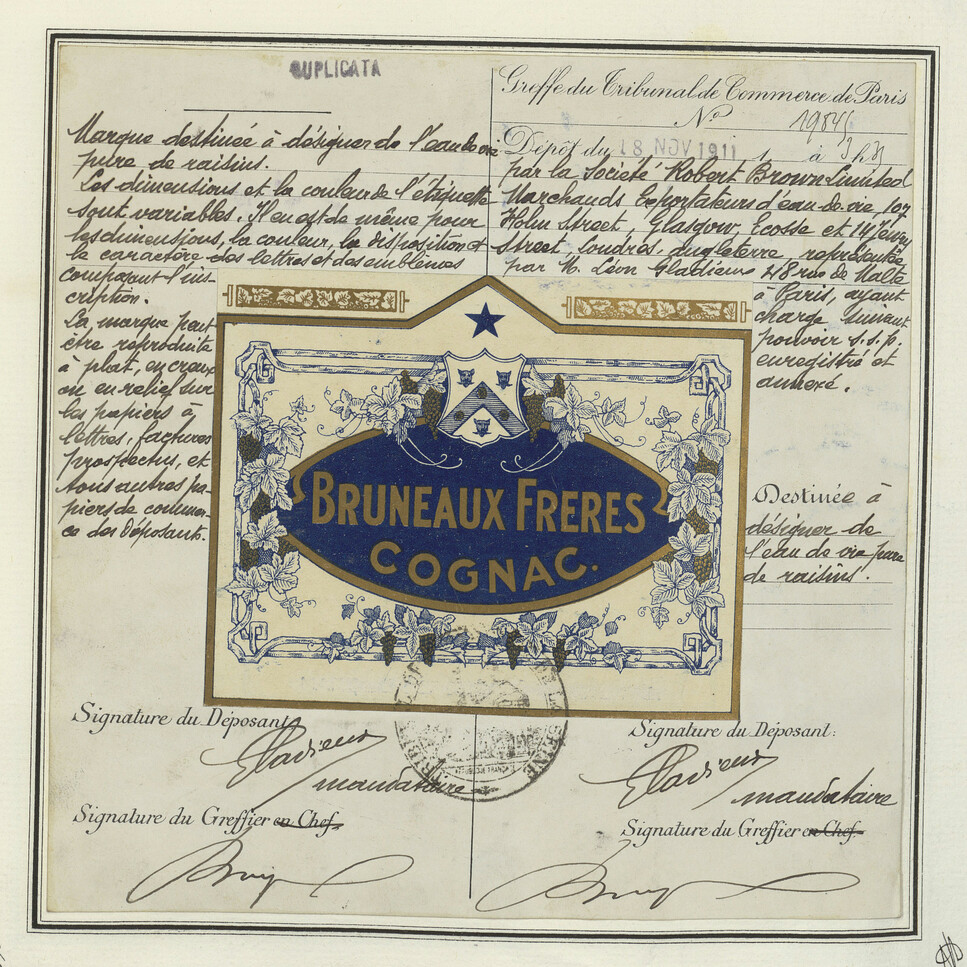 DUPLICATA
Marque destinée à désigner de l'eau de vie
pure de raisins.
Les dimensions et la couleur de l'étiquette
sont variables. Il en est de même pour
les dimensions, la couleur, la disposition et
le caractère des lettres et des emblèmes
composant l'ins-
cription.
La marque peut
être reproduite
à plat, en creux
ou en relief sur
les papiers à
lettres, factures
prospectus, et
tous autres pa-
piers de commer-
ce des déposants.
Greffe du Tribunal de Commerce de Paris
No
Dépôt du 18 NOV 1911 à 3h
par la Société Robert Brown Limited
Marchands Exportateurs d'eau-de-vie, 107
Holm Street, Glasgow, Ecosse et 14 Jewry
Street Londres, Angleterre, représentée
par M. Léon Gladieux 48 rue de Malte
à Paris, ayant
charge suivant
pouvoir s.s.p.
enregistré et
annexé.
BRUNEAUX FRERES
COGNAC.
Destinée à
désigner de
l'eau de vie pure
de raisins.
REPUBLIQUE FRANÇAISE
Signature du Déposant
Gladieux
mandataire
Signature du Greffier en Chef.
Signature du Déposant:
Gladieux
mandataire
Signature du Greffier en Chef.